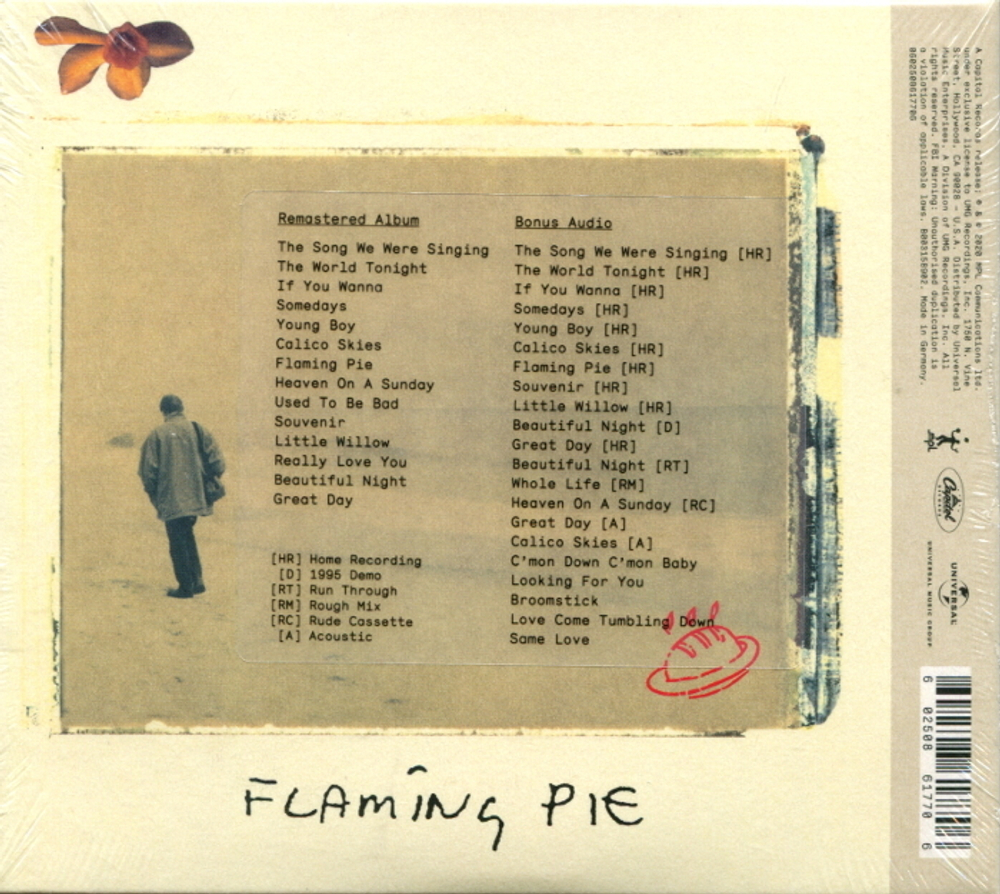 Remastered Album
The Song We Were Singing
The World Tonight
If You Wanna
Somedays
Young Boy
Calico Skies
Flaming Pie
Heaven On A Sunday
Used To Be Bad
Souvenir
Little Willow
Really Love You
Beautiful Night
Great Day
[HR] Home Recording
[D] 1995 Demo
[RT] Run Through
[RM] Rough Mix
[RC] Rude Cassette
[A] Acoustic
Bonus Audio
The Song We Were Singing [HR]
The World Tonight [HR]
If You Wanna [HR]
Somedays [HR]
Young Boy [HR]
Calico Skies [HR]
Flaming Pie [HR]
Souvenir [HR]
Little Willow [HR]
Beautiful Night [D]
Great Day [HR]
Beautiful Night [RT]
Whole Life [RM]
Heaven On A Sunday [RC]
Great Day [A]
Calico Skies [A]
C'mon Down C'mon Baby
Looking For You
Broomstick
Love Come Tumbling Down
Same Love
FLAMING PIE
A Capitol Records release; ℗ & © 2020 MPL Communications ltd.
under exclusive license to UMG Recordings, Inc. 1750 N. Vine
Street, Hollywood, CA 90028 - U.S.A. Distributed by Universal
Music Enterprises, A Division of UMG Recordings, Inc. All
rights reserved. FBI Warning: Unauthorised duplication is
a violation of applicable laws. B003158902. Made in Germany.
00602508617706
mpl
Capitol
RECORDS
UNIVERSAL
UNIVERSAL MUSIC GROUP
6 02508 61770 6